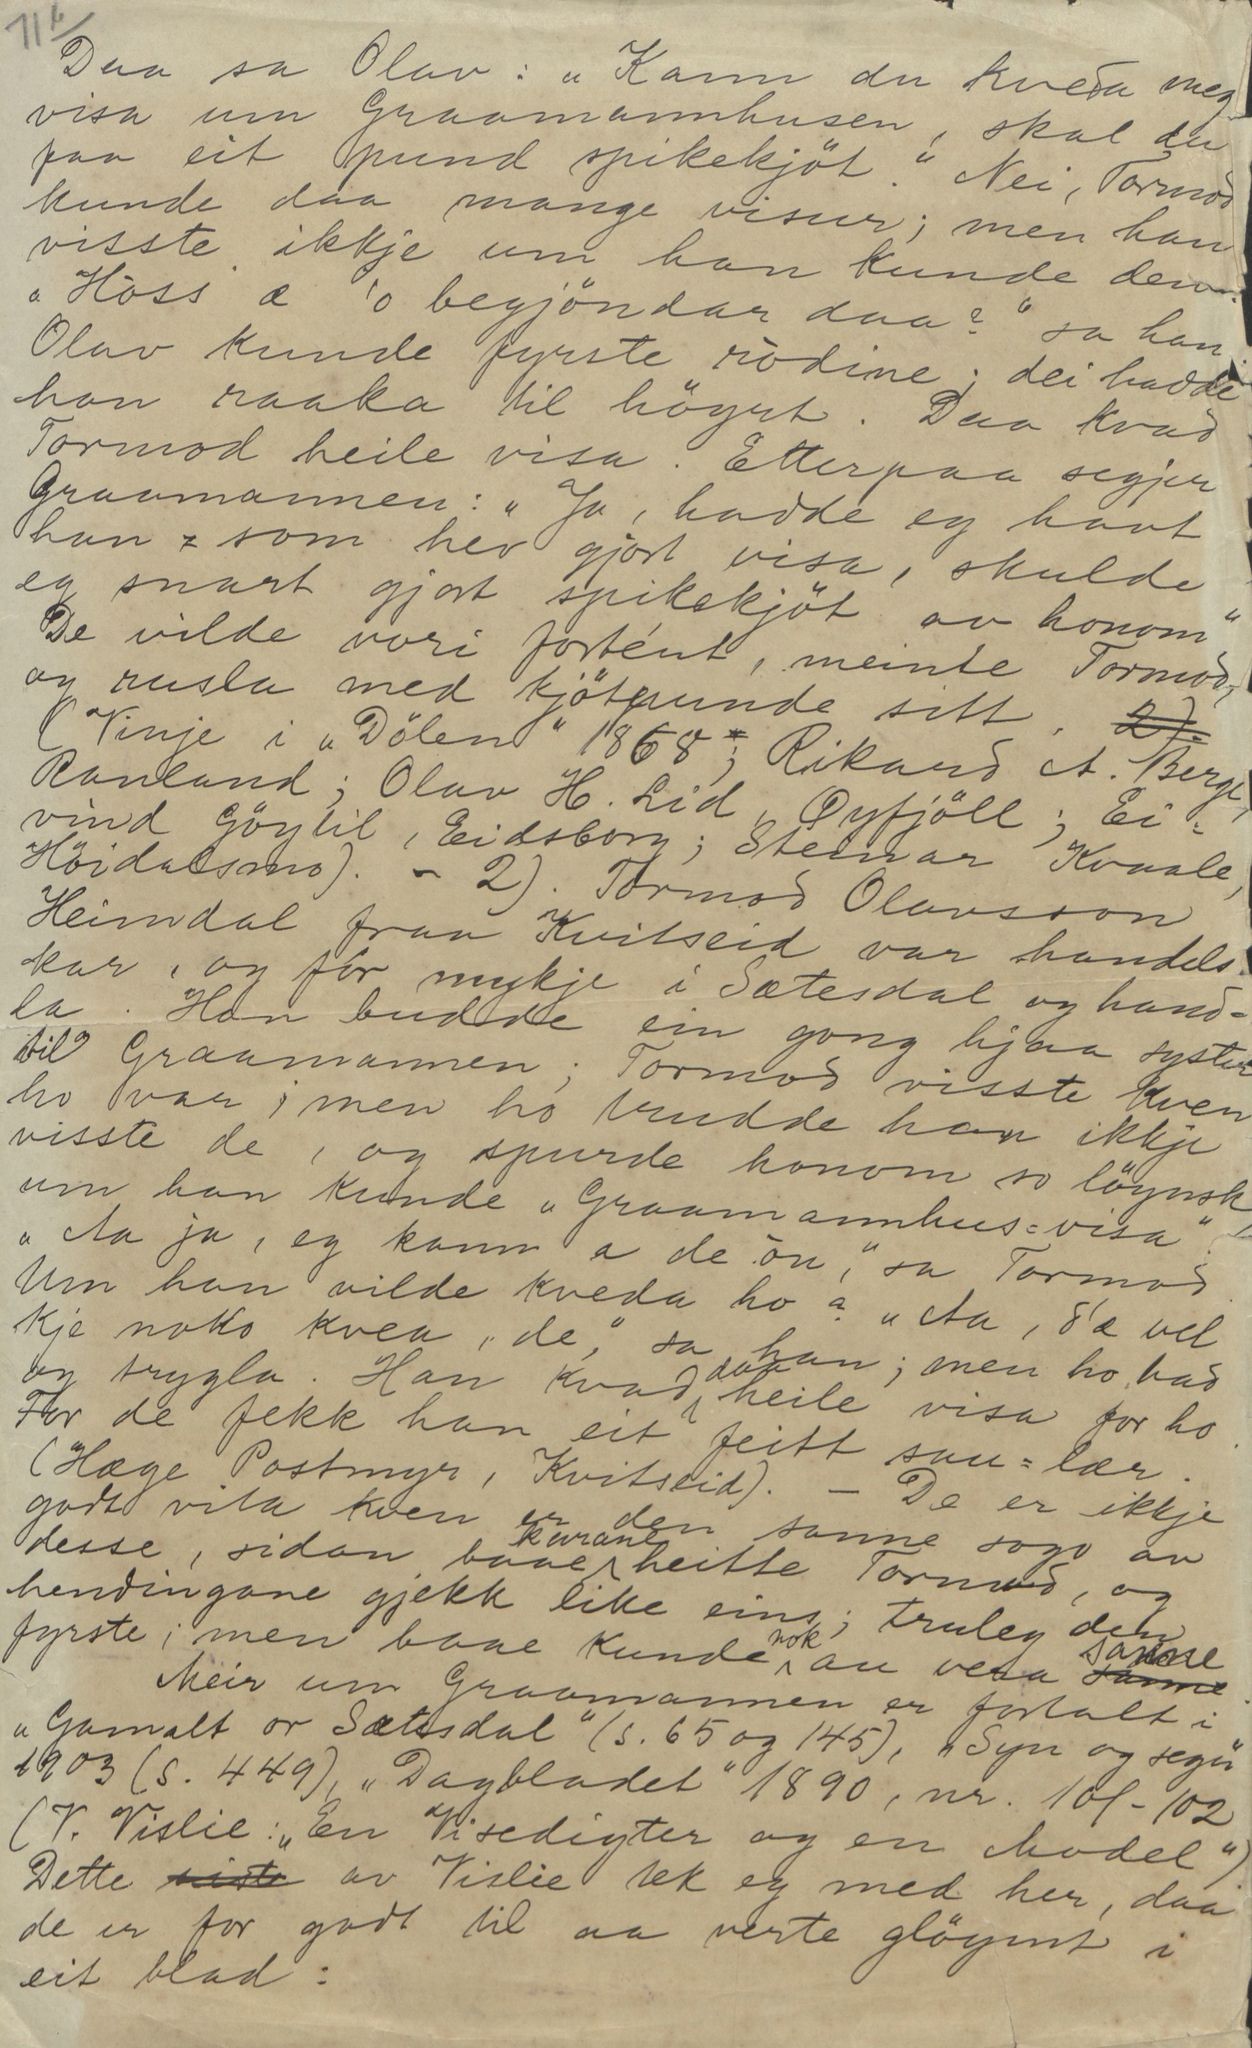 116
Daa sa Olav: „Kann du kveða meg
visa um Graamannhusen, skal du
faa eit pund spikekjöt.“ Nei, Tormod
kunde daa mange visur; men han
visste ikkje um han kunde den.
„Hòss æ 'o begjöndar daa?“ sa han.
Olav kunde fyrste ròdine; dei hadde
han raaka til höyrt. Daa kvad
Tormod heile visa. Etterpaa segjer
Graamannen: „Ja, hadde eg havt
han som hev gjort visa, skulde
eg snart gjort spikekjöt av honom“
De vilde vori fortént, meinte Tormod,
og rusla med kjötpunde sitt.
(Vinje i „Dölen“ 1868*; Rikard A. Berge,
Rauland; Olav H. Lid, Øyfjöll; Ei-
vind Göytil, Eidsborg; Steinar Kvaale,
Höidalsmo). - 2). Tormod Olavsson
Heimdal fraa Kvitseid var handels-
kar, og fór mykje i Sætesdal og hand-
la. Han budde ein gong hjaa syster
til Graamannen; Tormod visste kven
ho var; men ho trudde han ikkje
visste de, og spurde honom so löynsk,
um han kunde „Graamannhus-visa“.
„Aa ja, eg kann a de òn,“ sa Tormod.
Um han vilde kveda ho? „Aa, d'æ vel
kje noko kvea, de,“ sa han; men ho bad
og trygla. Han kvad daa heile visa for ho.
For de fekk han eit feitt sau-lær.
(Hæge Postmyr, Kvitseid). - De er ikkje
godt vita kven er den sanne sogo av
desse, sidan baae karane heitte Tormod, og
hendingane gjekk like eins; truleg den
fyrste; men baae kunde nok au vera sanne
sanne.
Meir um Graamannen er fortalt i
„Gamalt or Sætesdal“ (s. 65 og 145), „Syn og segn“
1903 (s. 449), „Dagbladet“ 1890, nr. 101-102
(V. Vislie: „En Visedigter og en Model“)
Dette siste av Vislie tek eg med her, daa
de er for godt til aa verte glöymt i
eit blad: